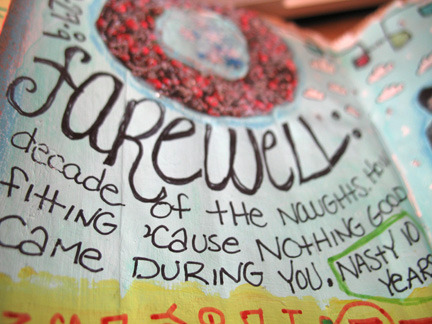 faRewell:
decade of tHe NAUGHTS. How
fittING 'cause NOTHING GOOD
came DURING YOU. NASTY 10
YEARS